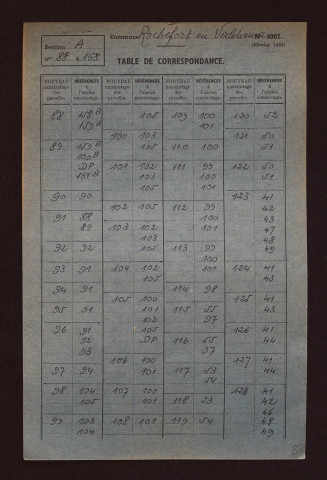 Commune Rochefort en Valdaine
N° 3002.
Section A
n° 88 à 168
TABLE DE CORRESPONDANCE.
NOUVEAU numérotage des parcelles. RÉFÉRENCES à l'ancien numérotage. NOUVEAU numérotage des parcelles. RÉFÉRENCES à l'ancien numérotage. NOUVEAU numérotage des parcelles. RÉFÉRENCES à l'ancien numérotage. NOUVEAU numérotage des parcelles. RÉFÉRENCES à l'ancien numérotage.
88 158 B 105 109 100 120 52
159 B 100 103 101
89 159 B 105 110 100 121 50
160 B 51
DP 101 102 111 99 122 50
161 B 103 100 51
105 101
90 90 123 41
102 105 112 99 42
91 88 100 43
89 103 102 101 47
103 48
92 92 105 113 99 49
100
93 91 104 102 101 124 41
105 43
94 91 114 98
105 100 125 41
95 91 101 115 55 43
102 97
96 91 105 126 41
92 DP 116 55 44
93 97
106 100 127 41
97 94 101 117 53 44
54
98 104 107 100 128 41
105 101 118 53 42
46
99 103 108 101 119 54 48
104 49